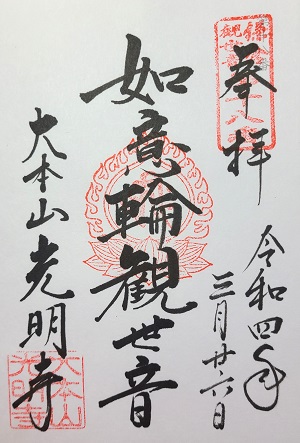 奉拝
令和四年
三月廿六日
如意輪観世音
大本山光明寺
大本山
光明寺